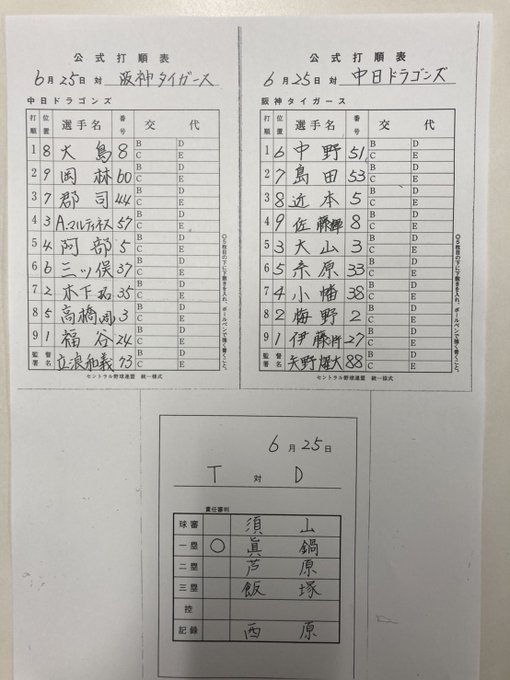 公式打順表
6月25日 対 阪神タイガース
中日ドラゴンズ
打順 位置 選手名 番号 交代
1 8 大島 8 B D C E
2 9 岡林 60 B D C E
3 7 郡司 44 B D C E
4 3 A.マルティネス 57 B D C E
5 4 阿部 5 B D C E
6 6 三ツ俣 37 B D C E
7 2 木下拓 35 B D C E
8 5 高橋周 3 B D C E
9 1 福谷 24 B D C E
監督名 立浪和義 73
◎5枚目の下に下敷きを入れ、ボールペンで強く書くこと。
セントラル野球連盟 統一様式
公式打順表
6月25日 対 中日ドラゴンズ
阪神タイガース
打順 位置 選手名 番号 交代
1 6 中野 51 B D C E
2 7 島田 53 B D C E
3 8 近本 5 B D C E
4 9 佐藤輝 8 B D C E
5 3 大山 3 B D C E
6 5 糸原 33 B D C E
7 4 小幡 38 B D C E
8 2 梅野 2 B D C E
9 1 伊藤将 27 B D C E
監督名 矢野燿大 88
◎5枚目の下に下敷きを入れ、ボールペンで強く書くこと。
セントラル野球連盟 統一様式
6月25日
T 対 D
責任審判
球審 須山
一塁 ○ 眞鍋
二塁 芦原
三塁 飯塚
控
記録 西原